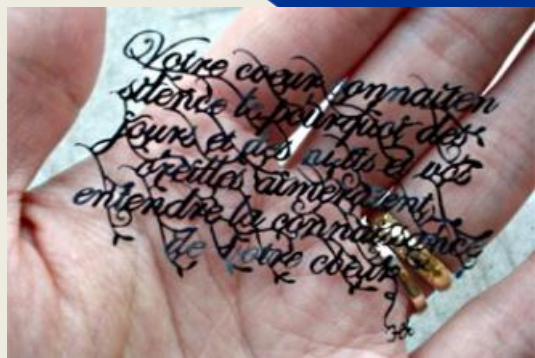 Votre cœur connait en
silence le pourquoi des
jours et des nuits et vos
oreilles aimeraient
entendre la connaissance
de votre cœur